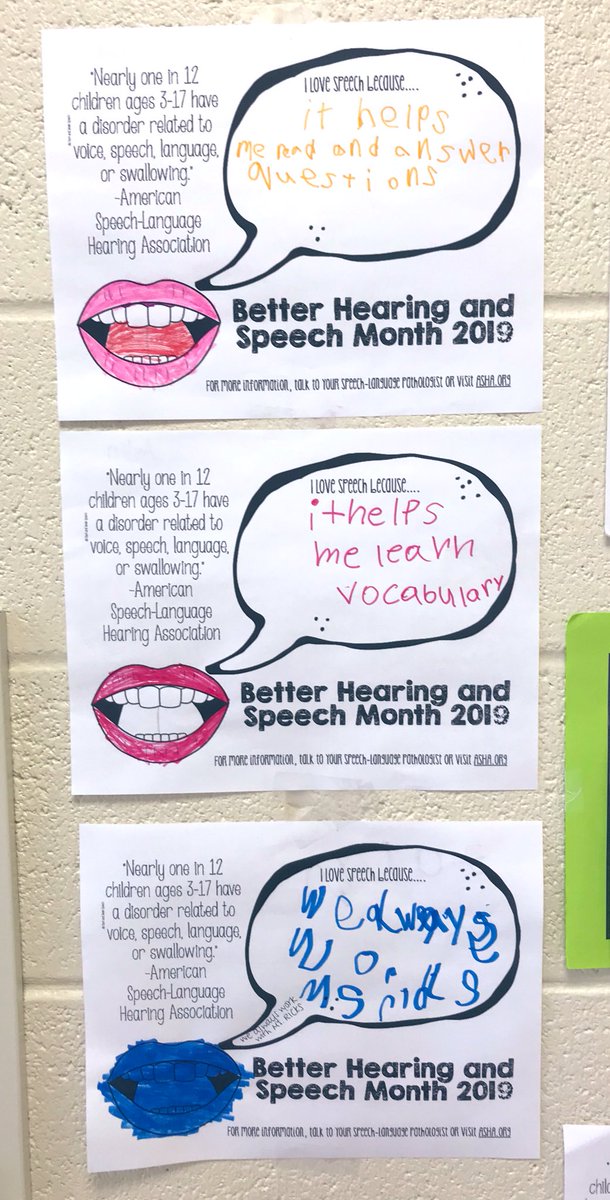 "Nearly one in 12
children ages 3-17 have
a disorder related to
voice, speech, language,
or swallowing."
-American
Speech-Language
Hearing Association
I love speech because....
it helps
me read and answer
questions
Better Hearing and
Speech Month 2019
For more information, talk to your speech-language pathologist or visit ASHA.org
"Nearly one in 12
children ages 3-17 have
a disorder related to
voice, speech, language,
or swallowing."
-American
Speech-Language
Hearing Association
I love speech because....
it helps
me learn
vocabulary
Better Hearing and
Speech Month 2019
For more information, talk to your speech-language pathologist or visit ASHA.org
"Nearly one in 12
children ages 3-17 have
a disorder related to
voice, speech, language,
or swallowing."
-American
Speech-Language
Hearing Association
I love speech because....
we always work
with Ms Ricks
Better Hearing and
Speech Month 2019
For more information, talk to your speech-language pathologist or visit ASHA.org